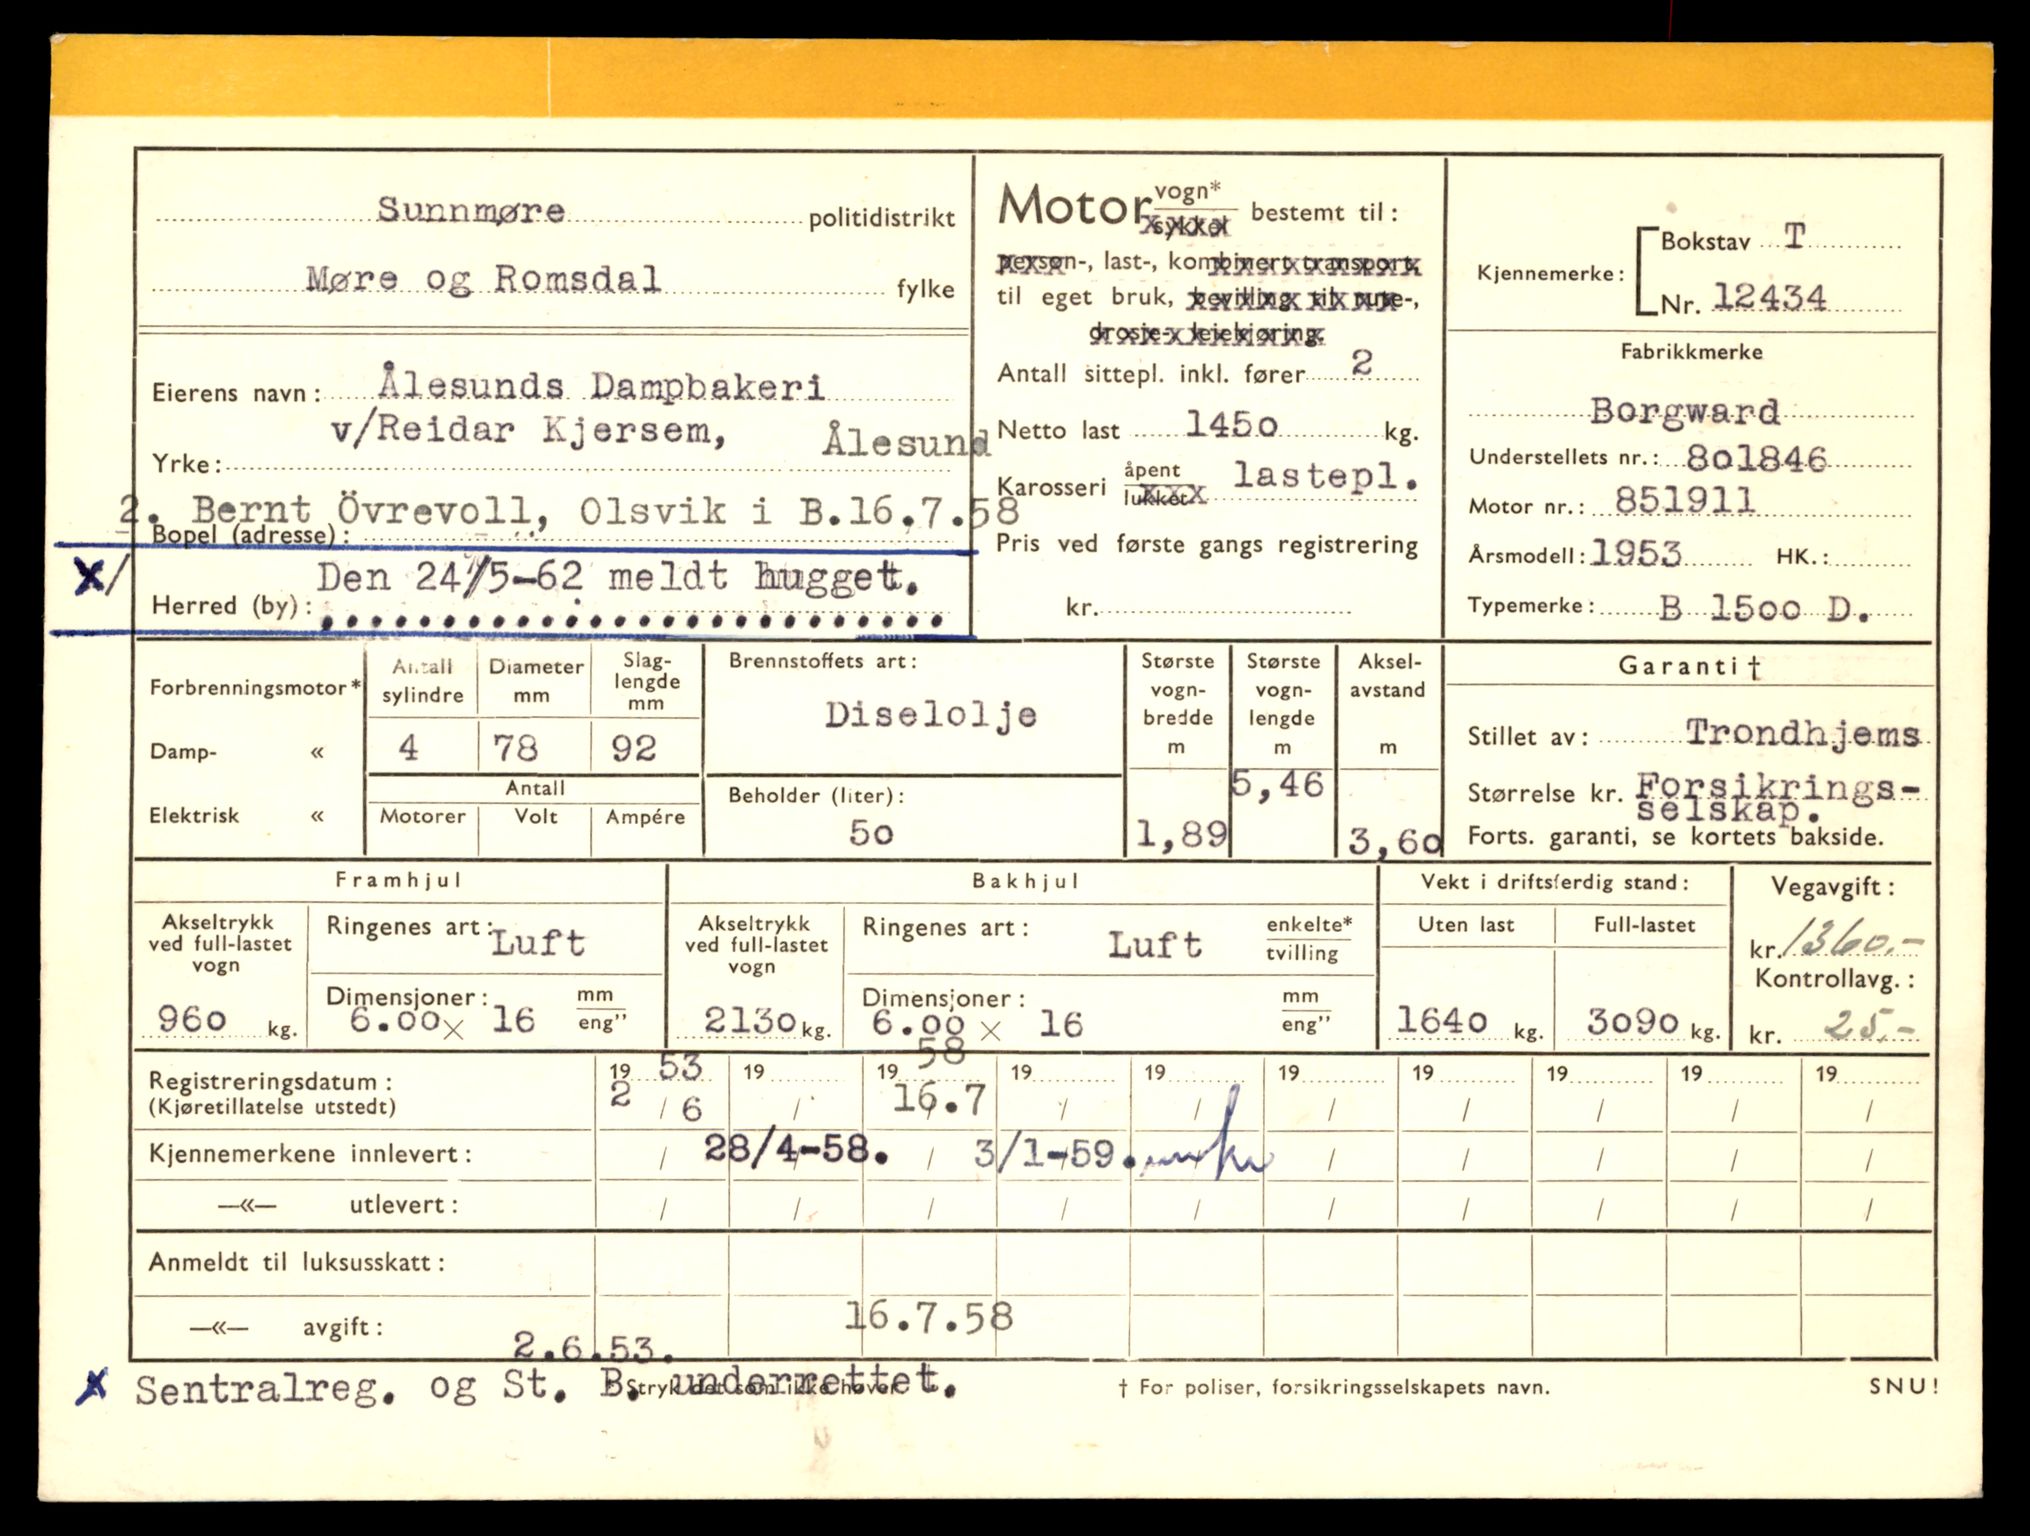 Sunnmøre politidistrikt
Møre og Romsdal fylke
Eierens navn: Ålesunds Dampbakeri
v/Reidar Kjersem, Ålesund
Yrke:
2. Bernt Övrevoll, Olsvik i B.16.7.58
Bopel (adresse):
x/ Den 24/5-62 meldt hugget.
Herred (by):
Motor vogn* bestemt til:
sykkel
person-, last-, kombinert transport,
til eget bruk, bevilling til rute-,
drosje-, leiekjøring.
Antall sittepl. inkl. fører 2
Netto last 1450 kg.
Karosseri åpent lastepl.
lukket
Pris ved første gangs registrering
kr.
Kjennemerke:
Bokstav T
Nr. 12434
Fabrikkmerke
Borgward
Understellets nr.: 801846
Motor nr.: 851911
Årsmodell: 1953 HK.:
Typemerke: B 1500 D.
Forbrenningsmotor*
Damp- «
Elektrisk «
Antall sylindre
4
Diameter mm
78
Slag-
lengde
mm
92
Antall
Motorer Volt Ampére
Brennstoffets art:
Diselolje
Beholder (liter):
50
Største
vogn-
bredde
m
1,89
Største
vogn-
lengde
m
5,46
Aksel-
avstand
m
3,60
Garanti †
Stillet av: Trondhjems
Størrelse kr. Forsikrings-
selskap.
Forts. garanti, se kortets bakside.
Framhjul
Akseltrykk
ved full-lastet
vogn
960 kg.
Ringenes art: Luft
Dimensjoner: mm
6.00 × 16 eng”
Bakhjul
Akseltrykk
ved full-lastet
vogn
2130 kg.
Ringenes art: Luft enkelte*
tvilling
Dimensjoner: mm
6.00 × 16 eng”
Vekt i driftsferdig stand:
Uten last Full-lastet
1640 kg. 3090 kg.
Vegavgift:
kr. 1360.-
Kontrollavg.:
kr. 25.-
58
Registreringsdatum: 19 53 19 19 19 19 19 19 19 19 19
(Kjøretillatelse utstedt) 2 / 6 / 16.7 / / / / / / /
Kjennemerkene innlevert: / 28/4-58. / 3/1-59. / / / / /
—«— utlevert: / / / / / / / / / /
Anmeldt til luksusskatt:
16.7.58
—«— avgift:
2.6.53.
x Sentralreg. og St. B. underrettet.
Stryk det som ikke høver.
† For poliser, forsikringsselskapets navn.
SNU!